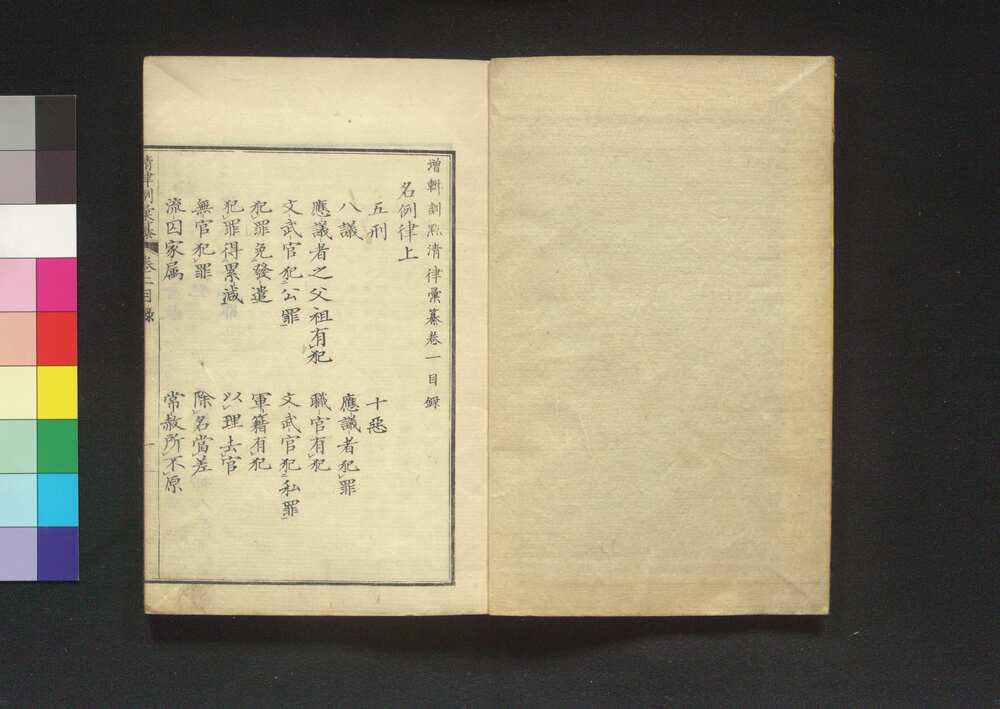 增輯訓點清律彙纂卷一目錄
名例律上
五刑　十惡
八議　應議者犯罪
應議者之父祖有犯　職官有犯
文武官犯公罪　文武官犯私罪
犯罪免發遣　軍籍有犯
犯罪得累減　以理去官
無官犯罪　除名當差
流囚家属　常赦所不原
清律訓彙纂　目錄